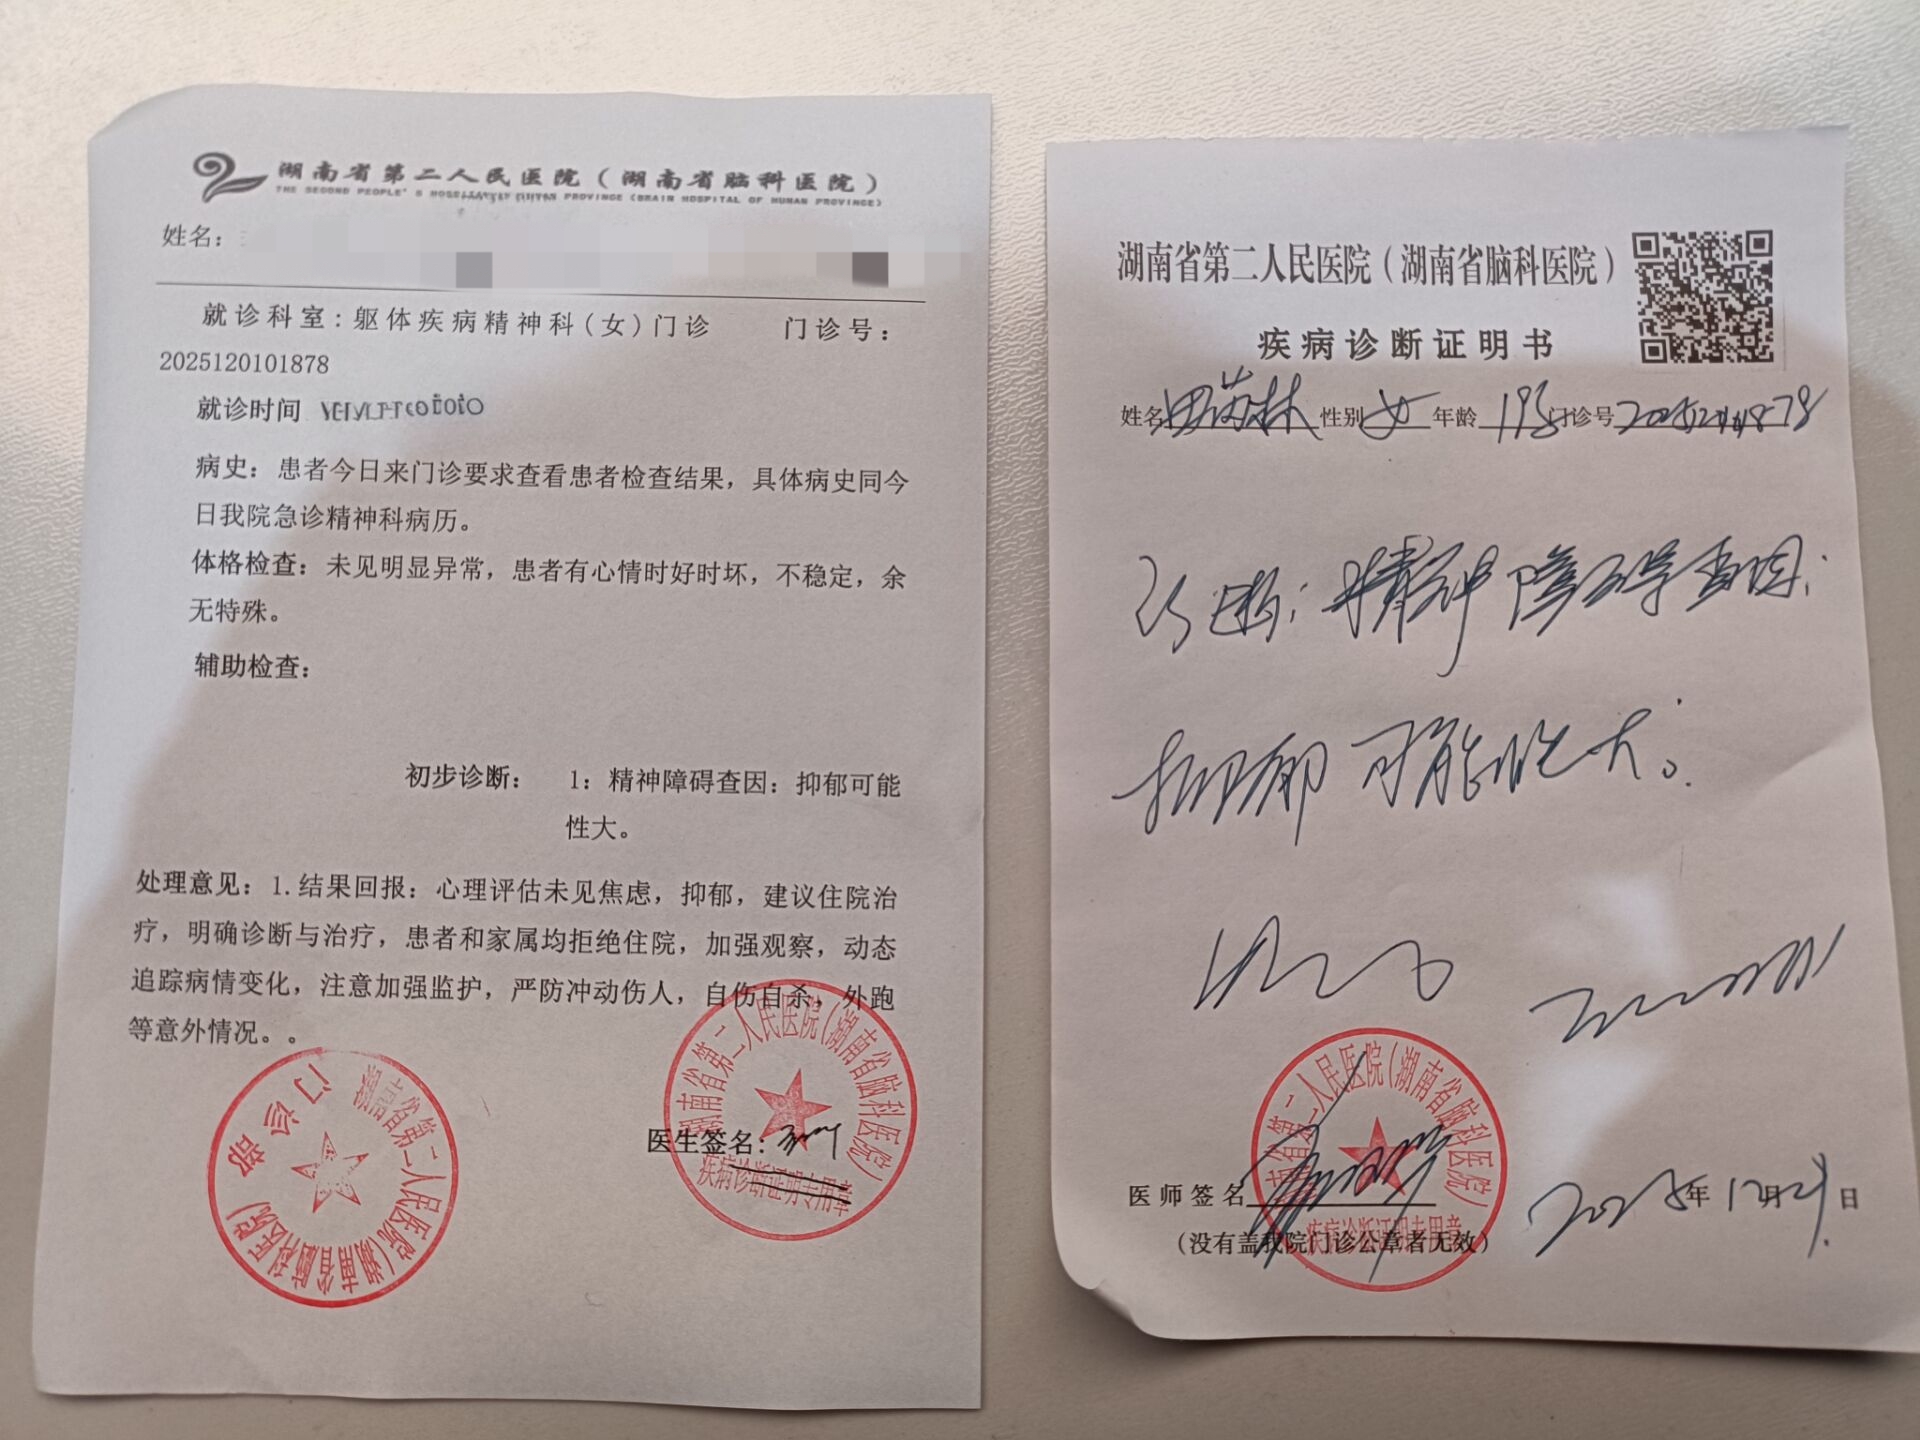 湖南省第二人民医院（湖南省脑科医院）
THE SECOND PEOPLE'S HOSPITAL OF HUNAN PROVINCE (BRAIN HOSPITAL OF HUNAN PROVINCE)
姓名：
就诊科室：躯体疾病精神科（女）门诊 门诊号：
2025120101878
就诊时间
病史：患者今日来门诊要求查看患者检查结果，具体病史同今
日我院急诊精神科病历。
体格检查：未见明显异常，患者有心情时好时坏，不稳定，余
无特殊。
辅助检查：
初步诊断： 1：精神障碍查因：抑郁可能
性大。
处理意见：1.结果回报：心理评估未见焦虑，抑郁，建议住院治
疗，明确诊断与治疗，患者和家属均拒绝住院，加强观察，动态
追踪病情变化，注意加强监护，严防冲动伤人，自伤自杀，外跑
等意外情况。。
湖南省第二人民医院（湖南省脑科医院）
门诊部
湖南省第二人民医院（湖南省脑科医院）
医生签名：
疾病诊断证明专用章
湖南省第二人民医院（湖南省脑科医院）
疾病诊断证明书
姓名 性别 女 年龄 门诊号
诊断：精神障碍查因：
抑郁可能性大。
湖南省第二人民医院（湖南省脑科医院）
医师签名 2025年12月 日
疾病诊断证明专用章
（没有盖我院门诊公章者无效）